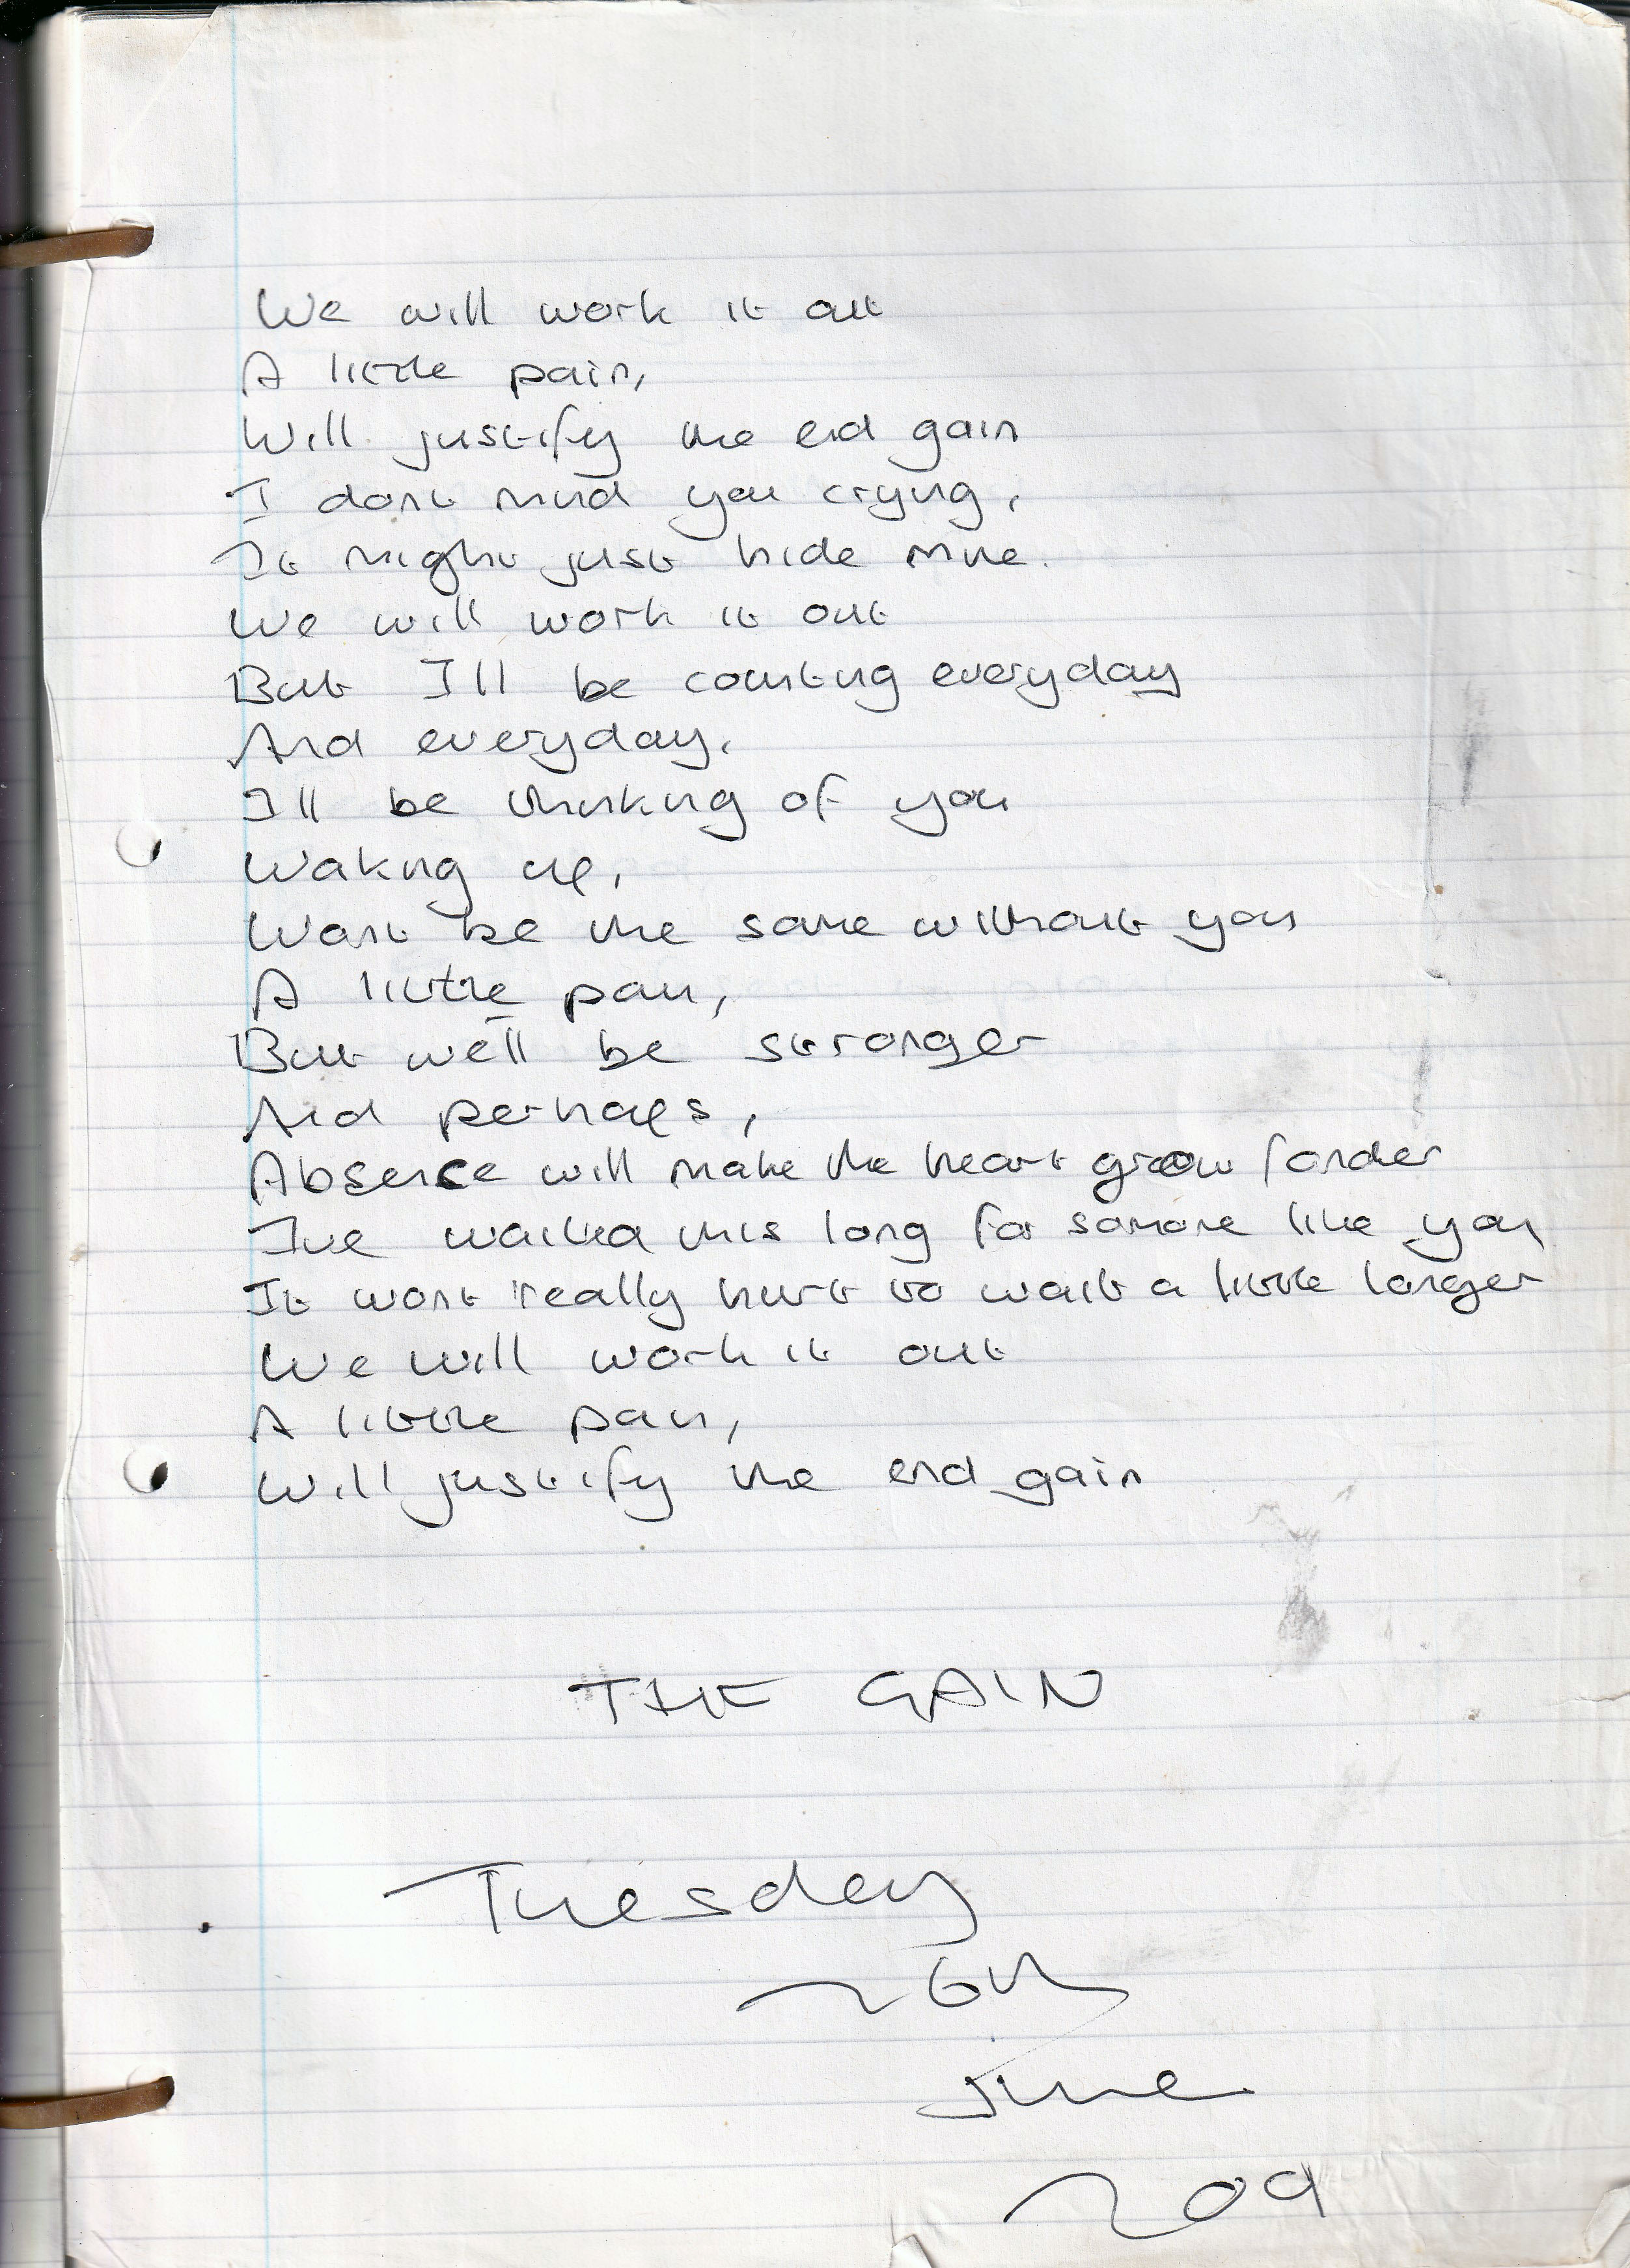 We will work it out
A little pain,
Will justify the end gain
I dont mind you crying,
It might just hide mine.
We will work it out
But I'll be counting everyday
And everyday,
I'll be thinking of you
Waking up,
Wont be the same without you
A little pain,
But we'll be stronger
And perhaps,
Absence will make the heart grow fonder
Ive waited this long for someone like you
It wont really hurt to wait a little longer
We will work it out
A little pain,
Will justify the end gain
THE GAIN
Tuesday
June